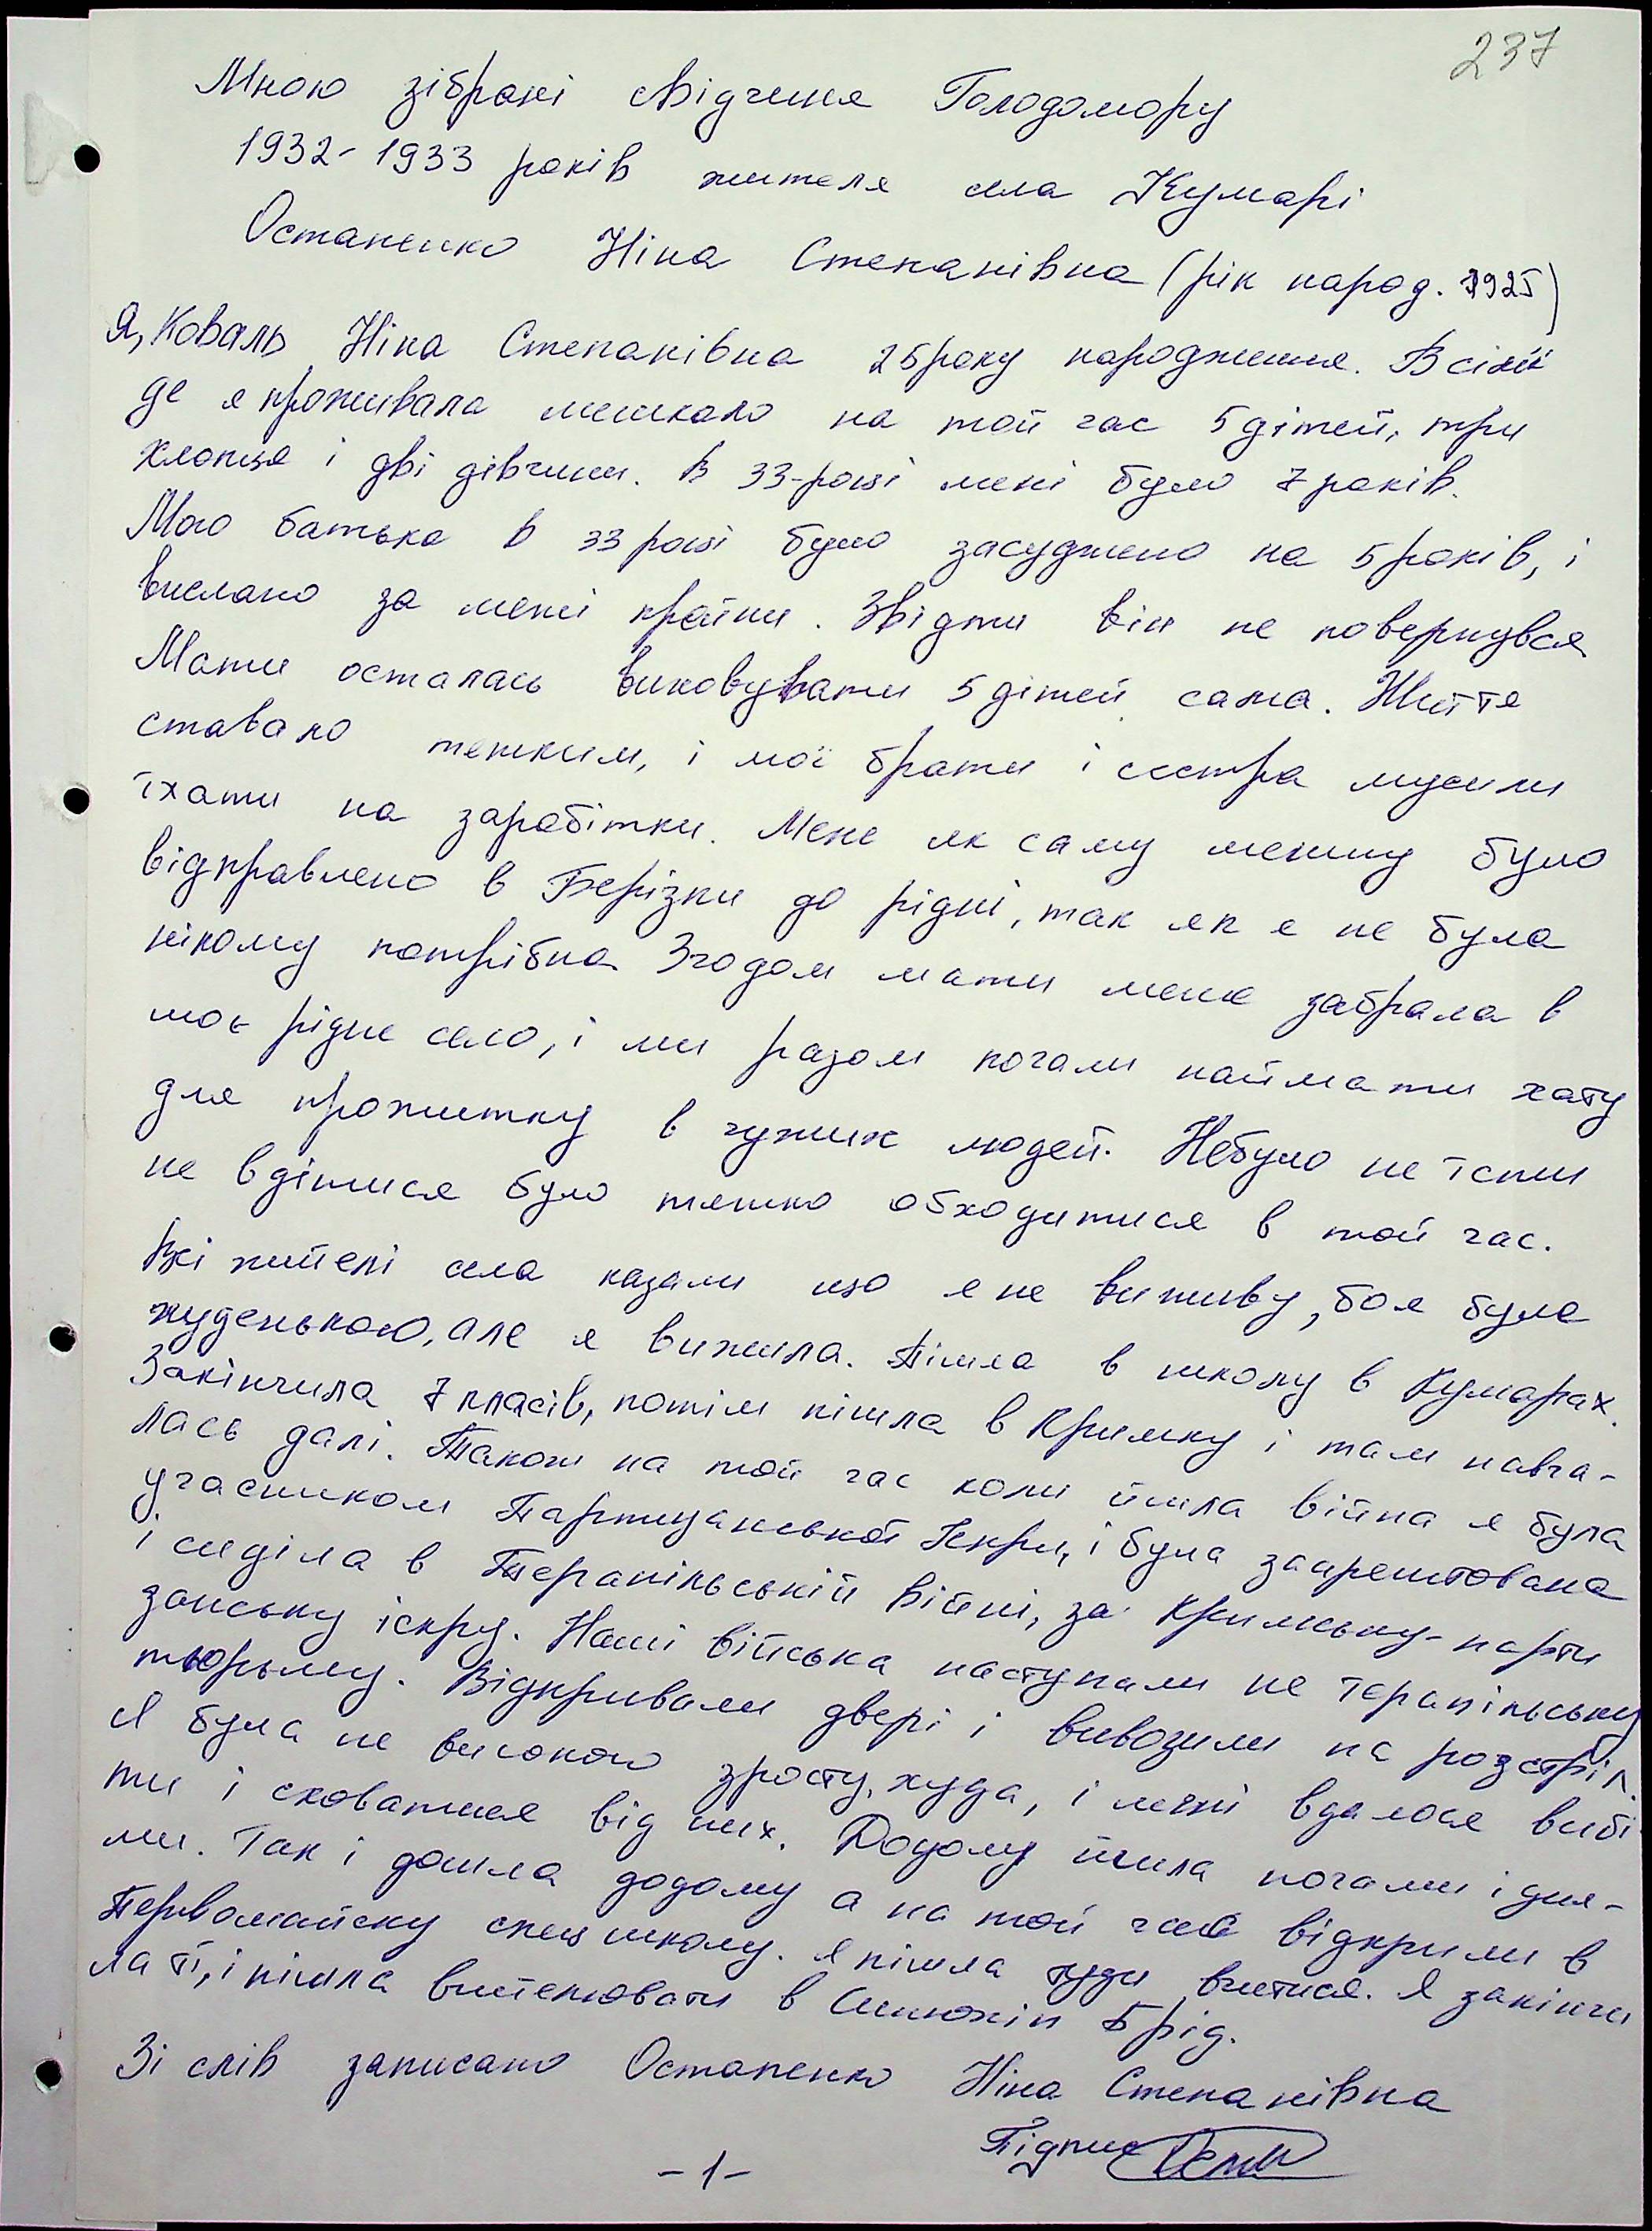 237
Мною зібрані свідчення Голодомору
1932-1933 років жителя села Кумарі
Остапенко Ніна Степанівна (рік народ. 1925)
Я, Коваль Ніна Степанівна 25 року народження. В сімї
де я проживала мешкало на той час 5 дітей, три
хлопця і дві дівчини. В 33-році мені було 7 років.
Мого батька в 33 році було засуджено на 5 років, і
вислано за межі країни. Звідти він не повернувся
Мати осталась виховувати 5 дітей сама. Життя
ставало тежким, і мої брати і сестра мусили
їхати на заробітки. Мене як саму меншу було
відправлено в Берізки до рідні, так як я не була
нікому потрібна. Згодом мати мене забрала в
моє рідне село, і ми разом почали наймати хату
для прожитку в чужих людей. Небуло не їсти
не вдітися було тяжко обходитися в той час.
Всі жителі села казали що я не виживу, бо я була
худенькою, але я вижила. Пішла в школу в Кумарах.
Закінчила 7 класів, потім пішла в Кримку і там навча-
лась далі. Також на той час коли йшла війна я була
учасником Партизанської Іскри, і була заарештована
і сиділа в Терапільській війні, за Кримську-парти
занську іскру. Наші війська наступали не терапільську
тюрьму. Відкривали двері і вивозили на розстріл.
Я була не високого зросту, худа, і мені вдалося вибі
ти і сховатися від них. Додому йшла ночами і дня-
ми. Так і дошла додому а на той час відкрили в
Первомайску спец школу. Я пішла туди вчитися. Я закінчи
ла її, і пішла вителювати в Синюхін Брід.
Зі слів записано Остапенко Ніна Степанівна
Підпис
-1-